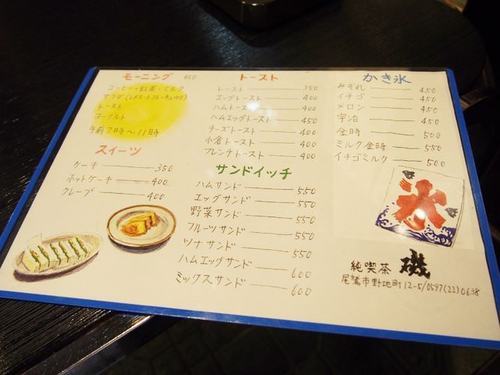 モーニング 450
コーヒー・紅茶・ミルク
トースト
ヨーグルト
午前7時〜11時
スイーツ
ケーキ 350
ホットケーキ 400
クレープ 400
トースト
トースト 350
エッグトースト 400
ハムトースト 400
ハムエッグトースト 450
チーズトースト 400
小倉トースト 400
フレンチトースト 400
サンドイッチ
ハムサンド 550
エッグサンド 550
野菜サンド 550
フルーツサンド 550
ツナサンド 550
ハムエッグサンド 600
ミックスサンド 600
かき氷
みぞれ 450
イチゴ 450
メロン 450
宇治 450
金時 500
ミルク金時 550
イチゴミルク 500
氷
純喫茶 磯
尾鷲市野地町12-5/0597(22)0638